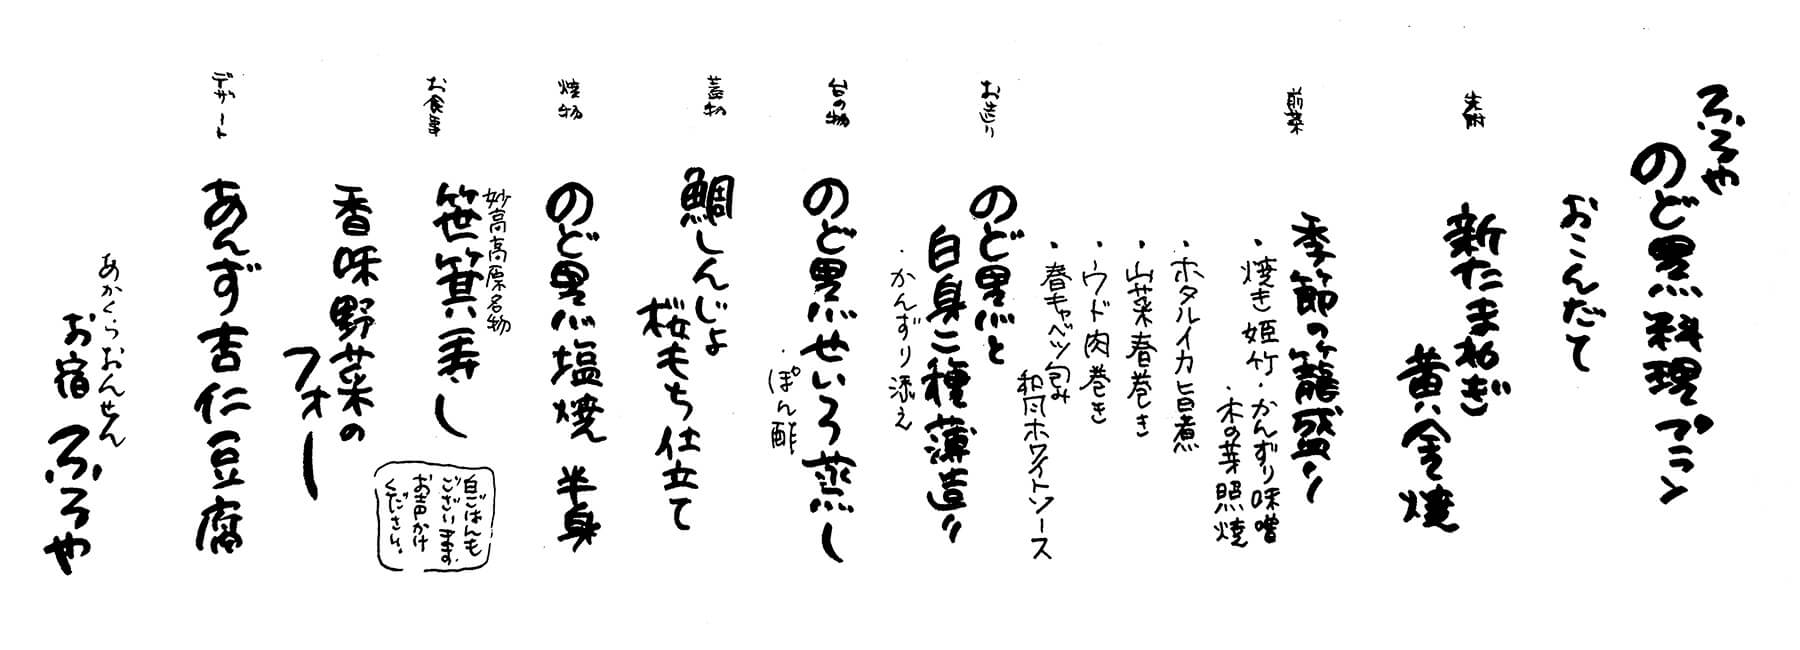 ふるや
のど黒料理プラン
おこんだて
先附
新たまねぎ
黄金焼
前菜
季節の籠盛り
・焼き姫竹・かんずり味噌
・木の芽照焼
・ホタルイカ旨煮
・山菜春巻き
・ウド肉巻き
・春キャベツ包み
和風ホワイトソース
お造り
のど黒と
白身二種薄造り
・かんずり添え
台の物
のど黒せいろ蒸し
・ぽん酢
蓋物
鯛しんじょ
桜もち仕立て
焼物
のど黒塩焼 半身
お食事
妙高高原名物
笹箕寿し
白ごはんも
ございます。
お声かけ
ください。
香味野菜の
フォー
デザート
あんず杏仁豆腐
あかくらおんせん
お宿 ふるや